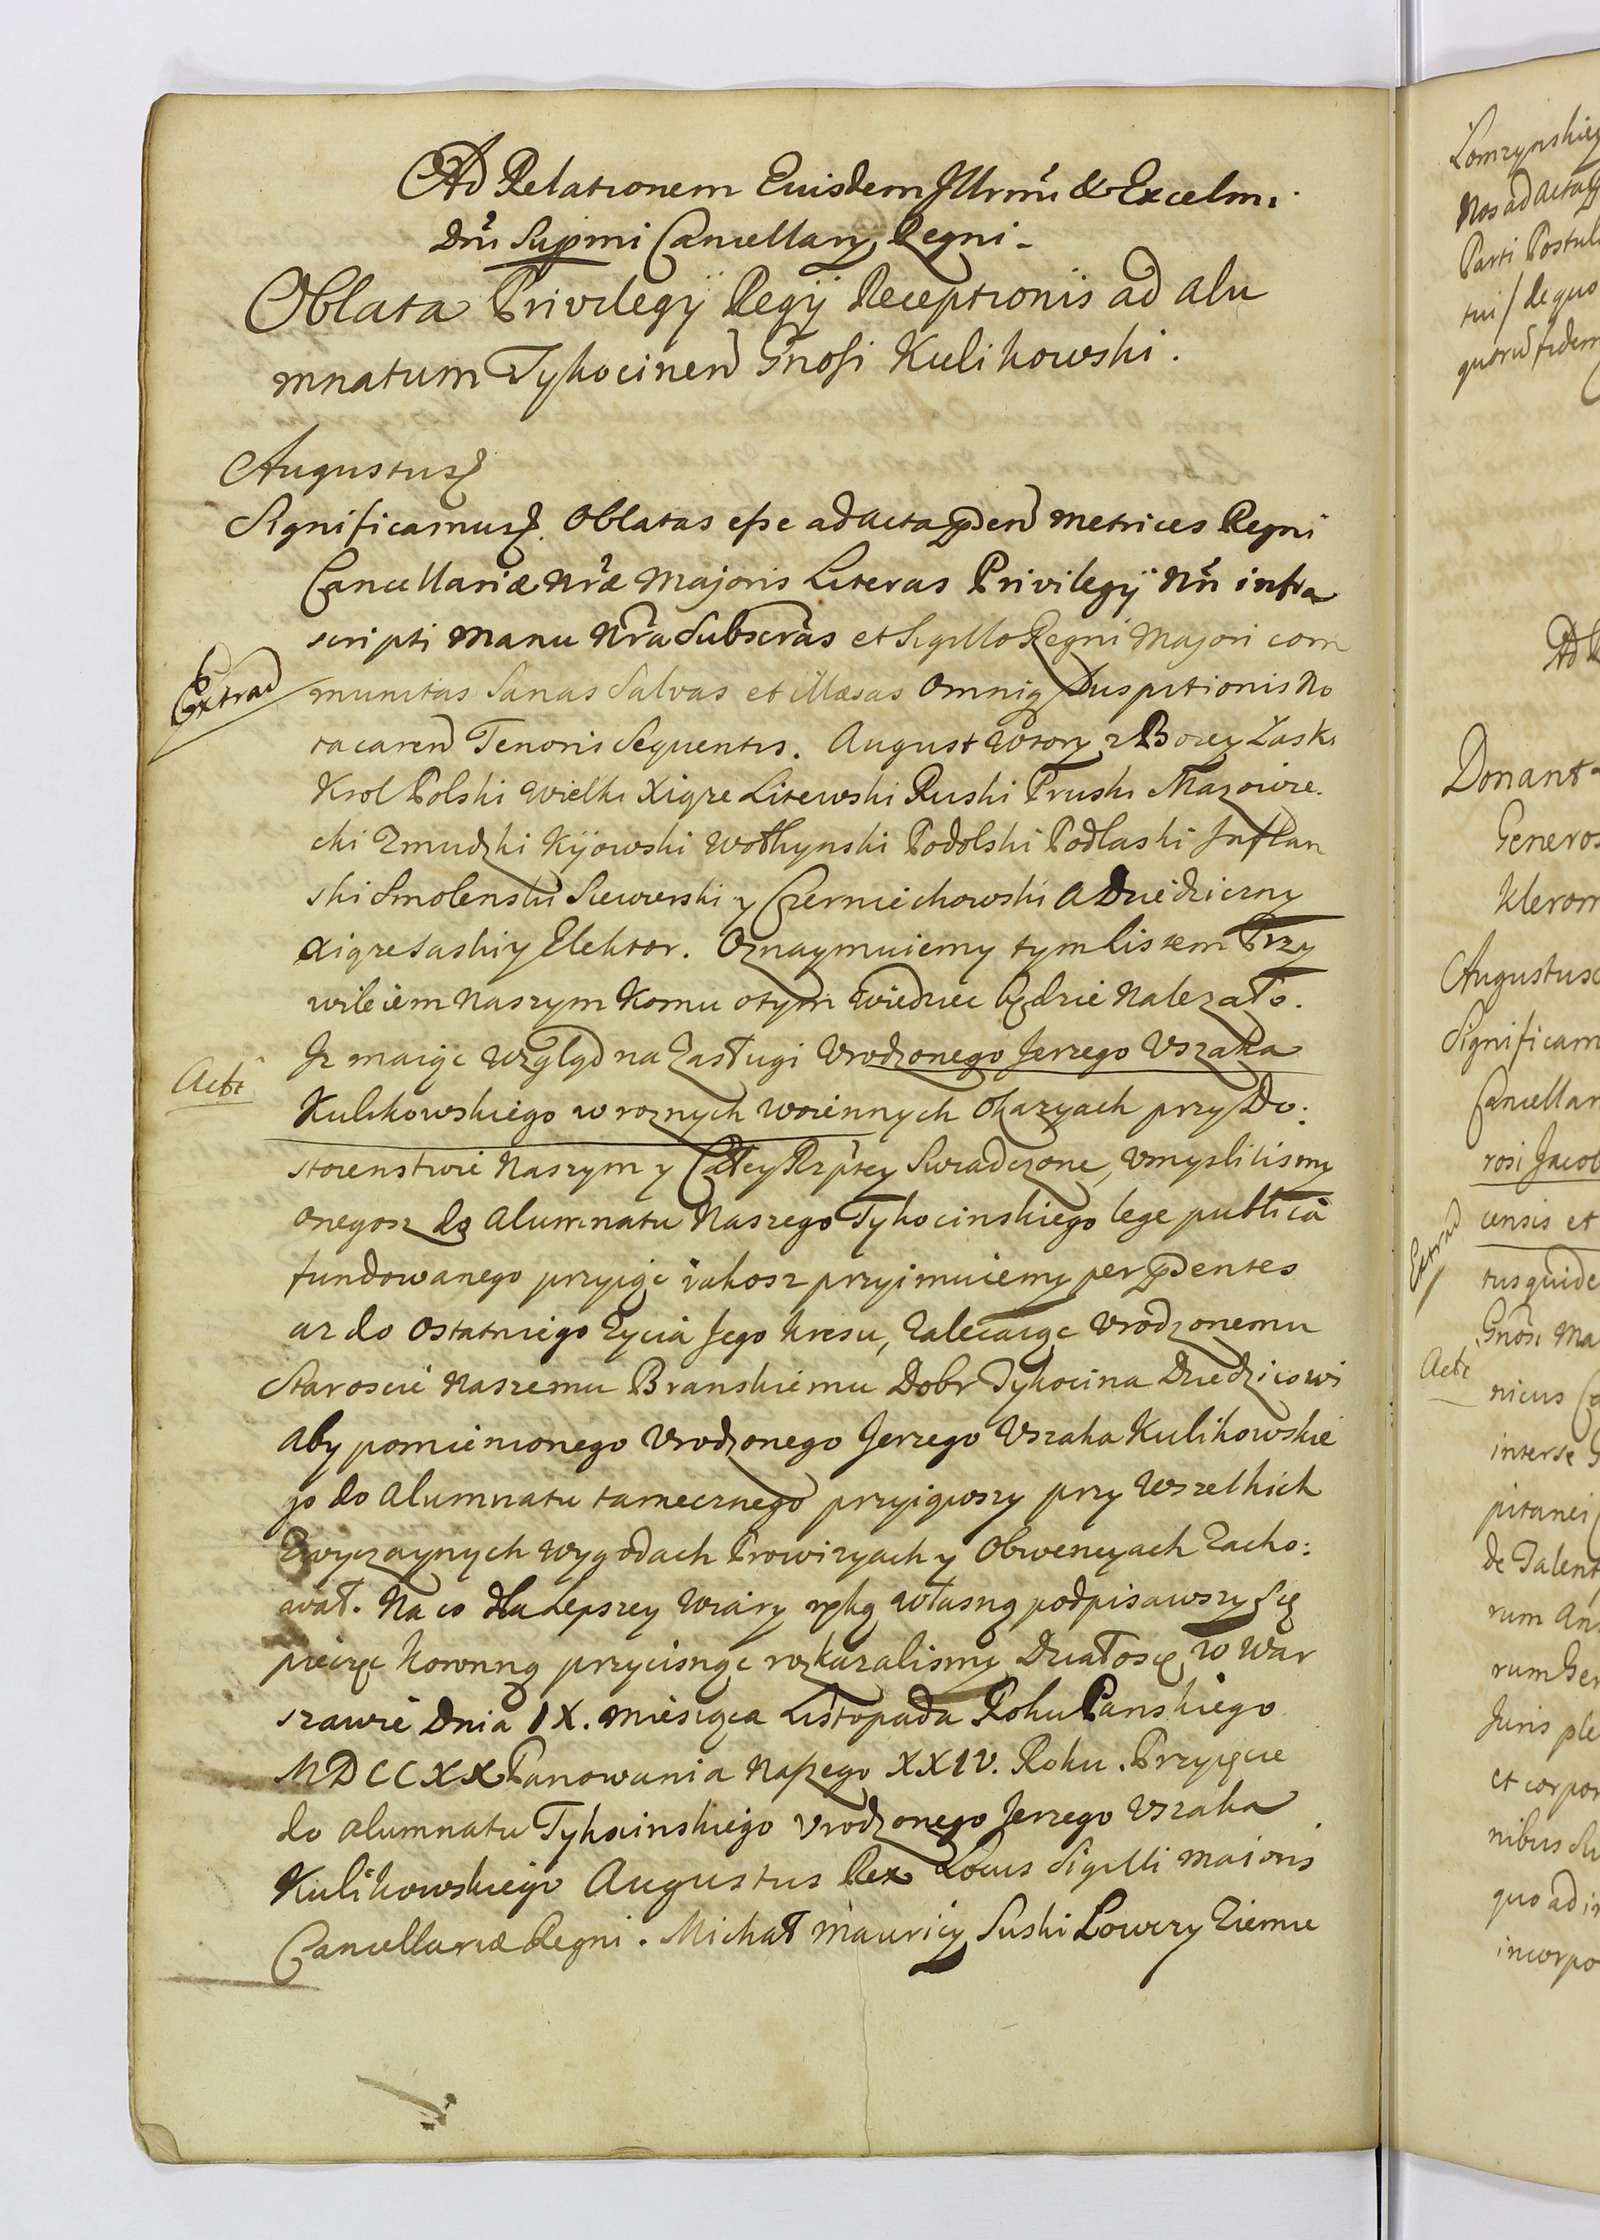 Ad Relationem Eiusdem Illrmi & Excelmi
Dni Supmi Cancellarij Regni.
Oblata Privilegÿ Regÿ Receptionis ad alu
mnatum Tykocinen Gnosi Kulikowski.
Augustus
Significamus. Oblatas esse ad acta pden metrices Regni
Cancellariæ Nræ Majoris Literas Privilegÿ Nri infra
scripti manu Nra Subscras et Sigillo Regni Majori com
Extrad
munitas Sanas Salvas et illæsas omniq Suspitionis No
ta caren Tenoris Sequentis. August Wtory z Bozey Łaski
Krol Polski Wielki Xiąze Litewski Ruski Pruski Mazowie.
cki Zmudzki Kÿowski Wołhynski Podolski Podlaski Inflan
ski Smolenski Siewierski y Czerniechowski a Dziedziczny
Xiąze Saski y Elektor. Oznaymuiemy tym Listem Przy
wileiem Naszym Komu o tym wiedziec będzie Nalezało.
Iz maiąc wzgląd na Zasługi Urodzonego Jerzego Uszaka
Actt
Kulikowskiego w roznych woiennych Okazyach przy Do:
stoienstwie Naszym y Całey Rzptey Swiadczone, Umyslilismy
onegosz do alumnatu Naszego Tykocinskiego lege publica
fundowanego przyiąc iakosz przyimuiemy per pdentes
az do ostatniego Zycia Jego kresu, Zalecaiąc Urodzonemu
Staroscie Naszemu Branskiemu Dobr Tykocina Dziedzicowi
aby pomienionego Urodzonego Jerzego Uszaka Kulikowskie
go do alumnatu tamecznego przyiąwszy przy wszelkich
Zwyczaynych wygodach Prowizyach y Obwencyach Zacho:
wał. Na co dla Lepszey wiary ręką własną podpisawszy się
pieczęc koronną przycisnąc rozkazalismy Działo się w War
szawie Dnia IX. Miesiąca Listopada Roku Panskiego
MDCCXX Panowania Naszego XXIV. Roku. Przyięcie
do alumnatu Tykocinskiego Urodzonego Jerzego Uszaka
Kulikowskiego Augustus Rex Locus Sigilli maioris
Cancellariæ Regni. Michał Mauricy Suski Lowczy Ziemie
Łomzynskieg
Nos ad acta
Parti Postul
tui / de quo
quorũ fidem
Donant
Generos
Klerom
Augustus
Significam
Cancellar
rosi Jacob
Extrad
censis et
tus quide
Gnosi Ma
Actt
nicus
inter se
pitanei
de Talent
rum An
rum Ger
Juris ple
et corpor
nibus
quo ad i
incorpo